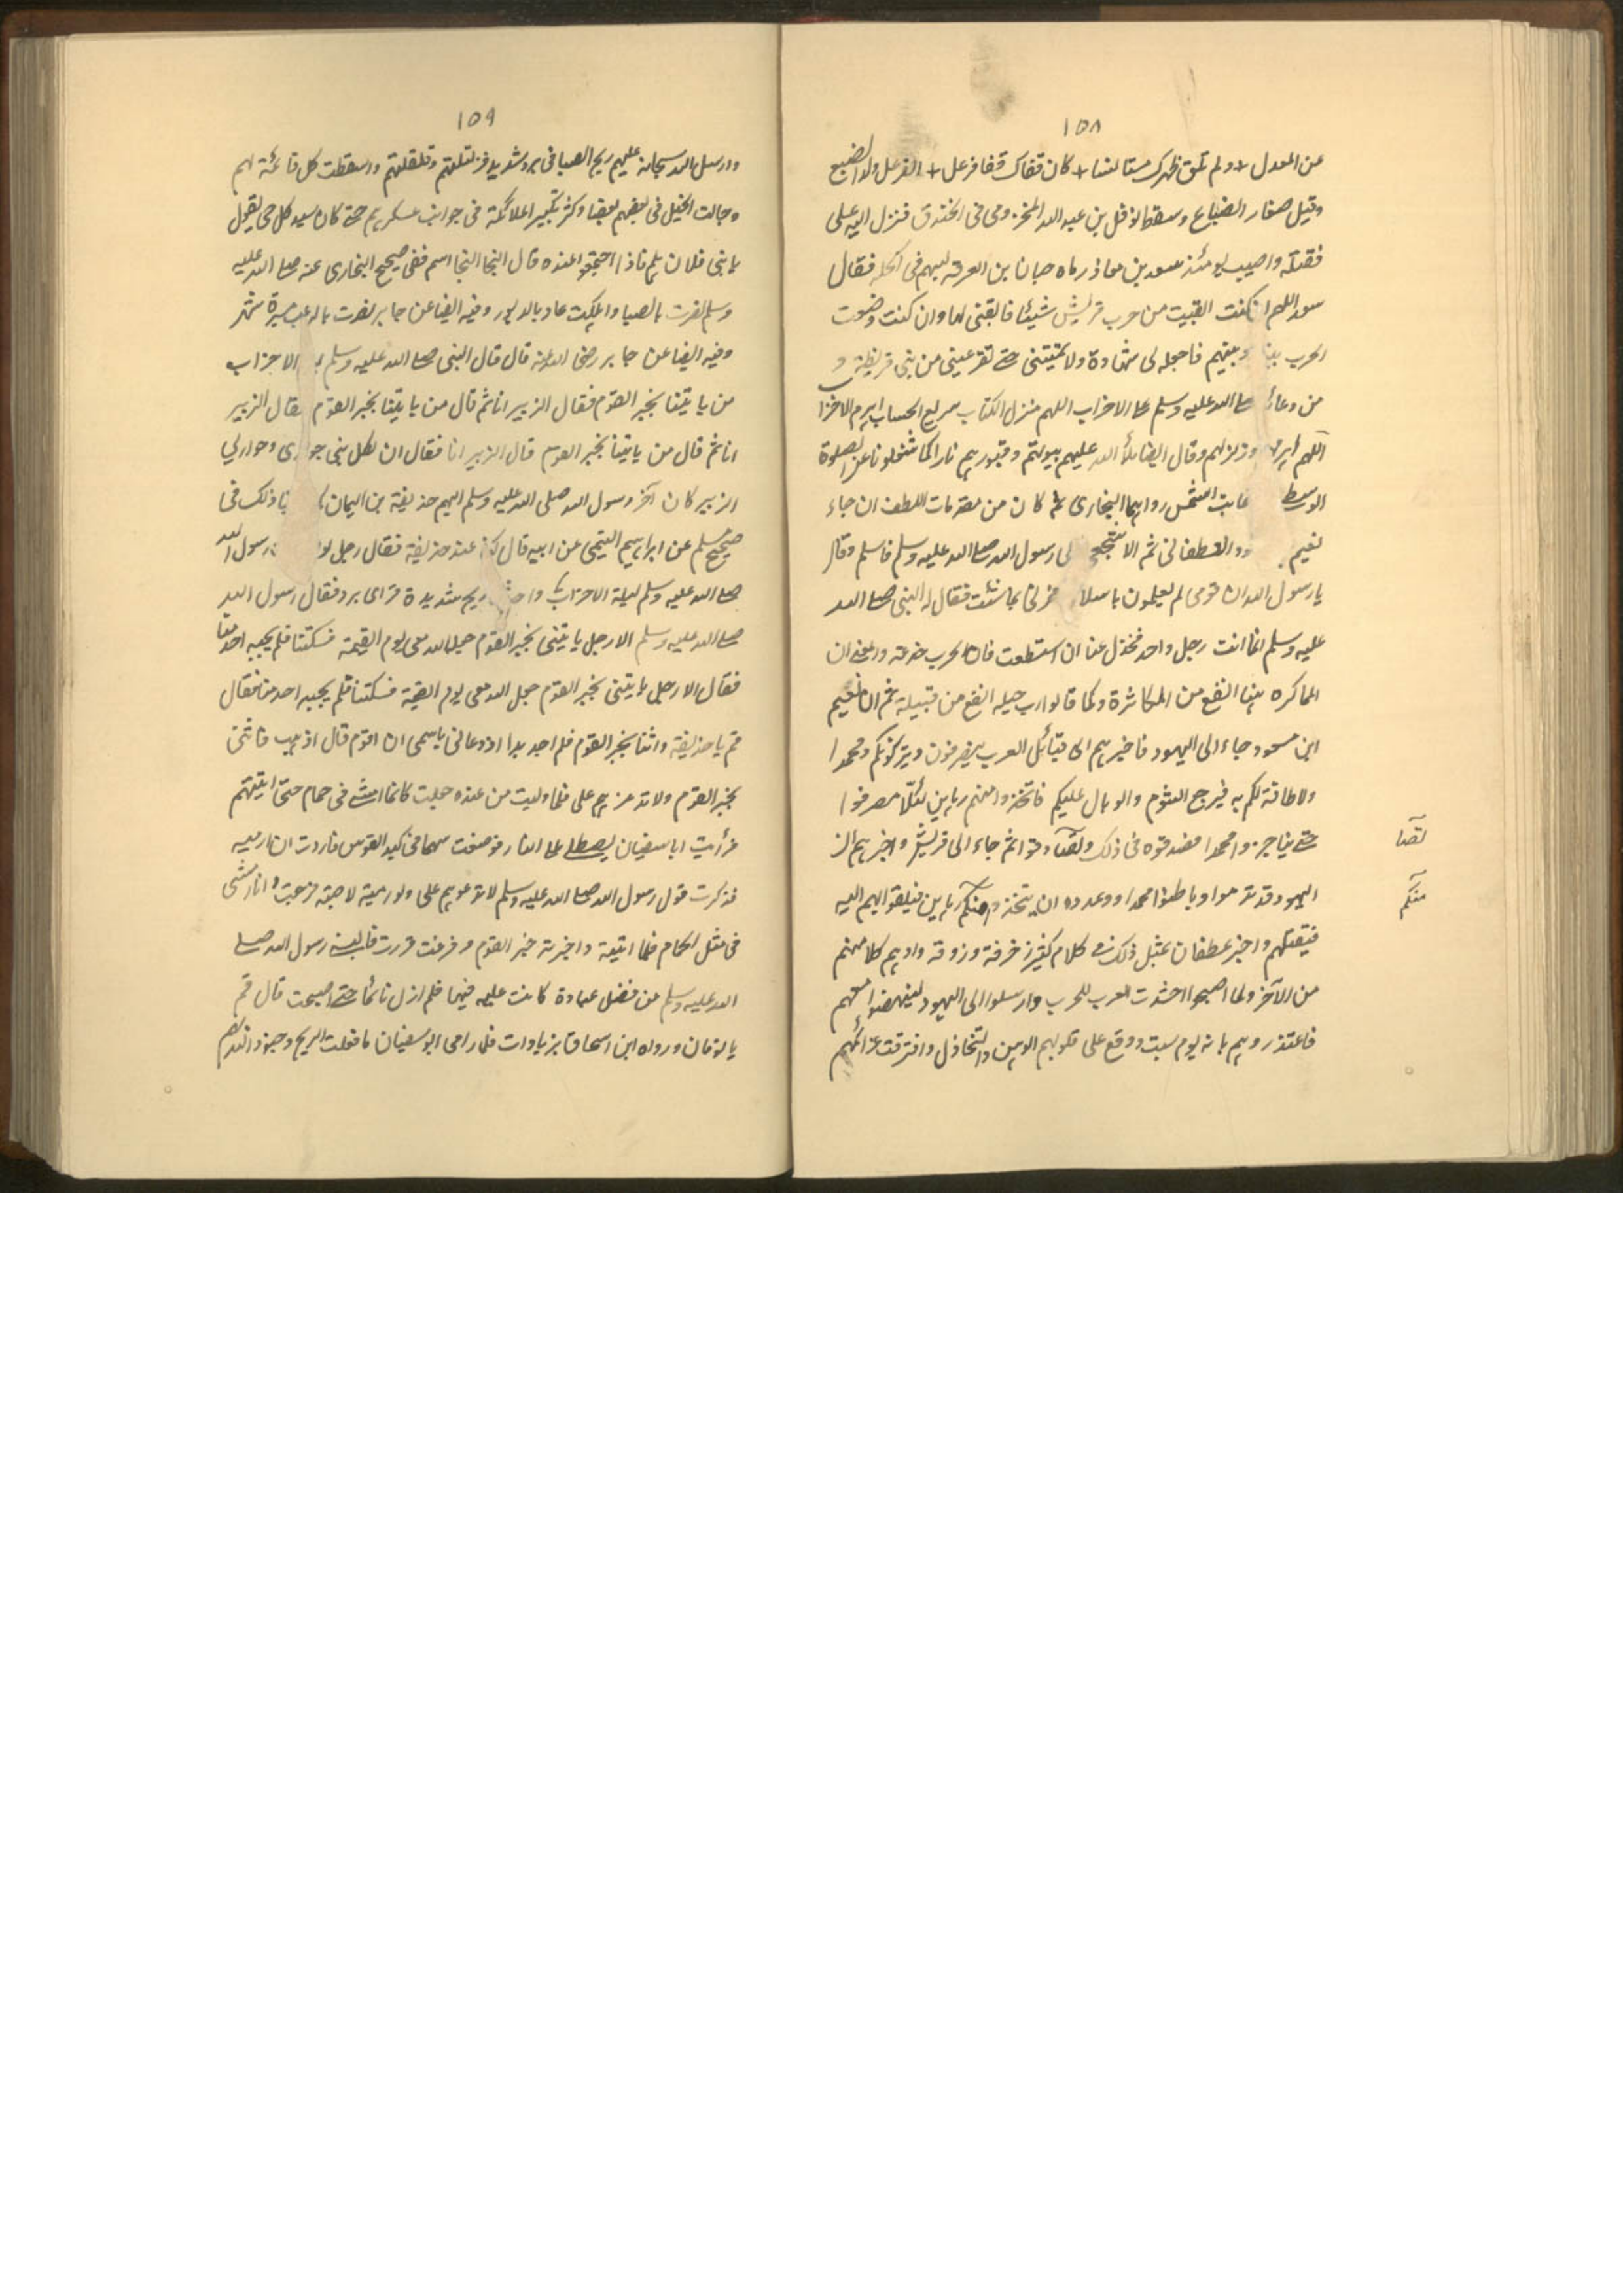 ١٥٨
عن المعدل + ولم تلق ظهرك مستانسا + كان قفاك قفا فرعل + الفرعل ولد الضبع
وقيل صغار الضباع وسقط نوفل بن عبد الله المخزومى فى الخندق فنزل اليه على
فقتله واصيب يومئذ سعد بن معاذ رماه حبان بن العرقه بسهم فى اكحله فقال
سعد اللهم ان كنت ابقيت من حرب قريش شيئا فابقنى لها وان كنت وضعت
الحرب بيننا وبينهم فاجعله لى شهادة ولا تميتنى حتے تقر عينى من بنى قريظة و
من دعائه صلے الله عليه وسلم على الاحزاب اللهم منزل الكتاب سريع الحساب اهزم الاحزا
اللهم اهزمهم وزلزلهم وقال ايضا ملأ الله عليهم بيوتهم وقبورهم نارا كما شغلونا عن الصلوة
الوسطى غابت الشمس رواهما البخارى ثم كان من مقدمات اللطف ان جاء
نعيم الغطفانى ثم الاشجعى الى رسول الله صلے الله عليه وسلم فاسلم وقال
يا رسول الله ان قومى لم يعلموا باسلامى فمرنى بما شئت فقال له النبى صلے الله
عليه وسلم انما انت رجل واحد فخذل عنا ان استطعت فان الحرب خدعة والمعنى ان
المماكره بها انفع من المكاثرة وكما قالوا رب حيله انفع من قبيلة ثم ان نعيم
ابن مسعود جاء الى اليهود فاخبرهم ان قبائل العرب ينصرفون ويتركونكم ومحمدا
ولا طاقة لكم به فيرجع الشوم والوبال عليكم فاتخذوا منهم رهاين لئلا ينصرفوا
حتے يناجزوا محمدا فصدقوه فى ذلك ثم جاء الى قريش واخبرهم ان
اليهود قد ندموا وباطنوا محمدا ووعدوه ان يتخذوا منكم رهاين فيلقوا بهم اليه
فيقتلهم واخبر غطفان بمثل ذلك فى كلام كثير زخرفة وزوقة واوهم كلا منهم
من الآخر ولما اصبحوا احتشدت العرب للحرب وارسلوا الى اليهود لينهضوا معهم
فاعتذر وهم بانه يوم سبت ووقع على قلوبهم الوهن والتخاذل وافترقت عزائمهم
منكم
١٥٩
وارسل الله سبحانه عليهم ريح الصبا فى برد شديد فزلزلتهم وقلقلتهم واسقطت كل قائمة لهم
وجالت الخيل فى بعضهم بعضا وكثر تكبير الملائكة فى جوانب عسكرهم حتے كان سيد كل حى يقول
يا بنى فلان هلم فاذا اجتمعوا عنده قال النجا النجا ففى صحيح البخارى عنه صلے الله عليه
وسلم نصرت بالصبا واهلكت عاد بالدبور وفيه ايضا عن جابر نصرت بالرعب مسيرة شهر
وفيه ايضا عن جابر رضى الله عنه قال قال النبى صلے الله عليه وسلم الاحزاب
من ياتينا بخبر القوم فقال الزبير انا ثم قال من ياتينا بخبر القوم فقال الزبير
انا ثم قال من ياتينا بخبر القوم قال الزبير انا فقال ان لكل نبى حوارى وحواريى
الزبير كان آخر رسول الله صلى الله عليه وسلم اليهم حذيفة بن اليمان ذلك فى
صحيح مسلم عن ابراهيم التيمى عن ابيه قال كنا عند حذيفة فقال رجل رسول الله
صلے الله عليه وسلم ليلة الاحزاب ريح شديدة قراى برد فقال رسول الله
صلے الله عليه وسلم الا رجل ياتينى بخبر القوم جعله الله معى يوم القيمة فسكتنا فلم يجبه احد منا
فقال الا رجل ياتينى بخبر القوم جعله الله معى يوم القيمة فسكتنا فلم يجبه احد منا فقال
قم يا حذيفة واتنا بخبر القوم فلم اجد بدا اذ دعانى باسمى ان اقوم قال اذهب فاتنى
بخبر القوم ولا تذعرهم على فلما وليت من عنده جعلت كانما امشے فى حمام حتى اتيتهم
فرأيت ابا سفيان يصطلے على النار فوضعت سهما فى كبد القوس فاردت ان ارميه
فذكرت قول رسول الله صلے الله عليه وسلم لا تذعرهم على ولو رميته لاصبته فرجعت وانا امشى
فى مثل الحمام فلما اتيته واخبرته خبر القوم وفرغت قررت فالبسنے رسول الله صلے
الله عليه وسلم من فضل عباءة كانت عليه فيها فلم ازل نائما حتے اصبحت قال قم
يا نومان ورواه ابن اسحاق بزيادات فلما راى ابو سفيان ما فعلت الريح وجنود الله بهم